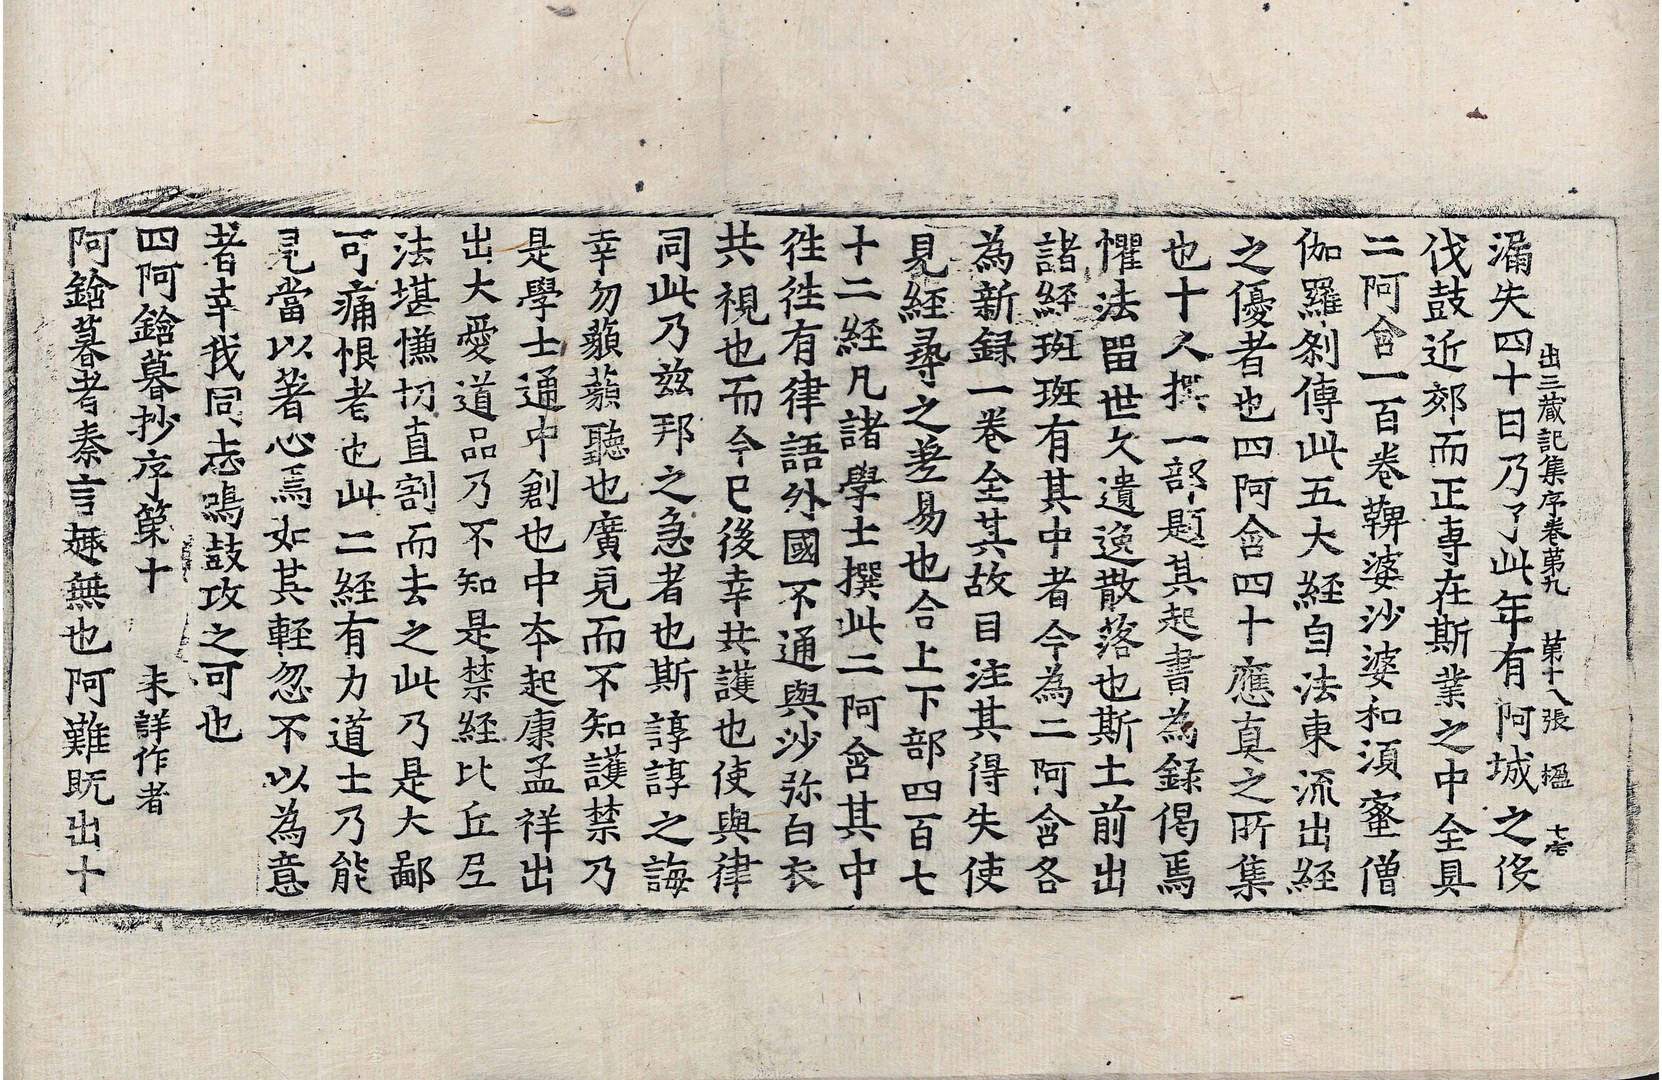 出三藏記集序卷第九　第十八張　楹
漏失四十日乃了此年有阿城之伇
伐鼓近郊而正專在斯業之中全具
二阿鋡一百卷鞞婆沙婆和須蜜僧
伽羅剎傳此五大經自法東流出經
之優者也四阿鋡四十應真之所集
也十人撰一部題其起書為錄偈焉
懼法留世久遺逸散落也斯土前出
諸經班班有其中者今為二阿鋡各
為新錄一卷全其故目注其得失使
見經尋之差易也合上下部四百七
十二經凡諸學士撰此二阿鋡其中
往往有律語外國不通與沙弥白衣
共視也而今已後幸共護也使與律
同此乃茲邦之急者也斯諄諄之誨
幸勿藐藐聽也廣見而不知護禁乃
是學士通中創也中夲起康孟祥出
出大愛道品乃不知是禁經比丘尼
法堪慊切直割而去之此乃是大鄙
可痛恨者也此二經有力道士乃能
見當以著心焉如其輕忽不以為意
者幸我同志鳴鼓攻之可也
四阿鋡暮抄序第十　未詳作者
阿鋡暮者秦言趣無也阿難既出十